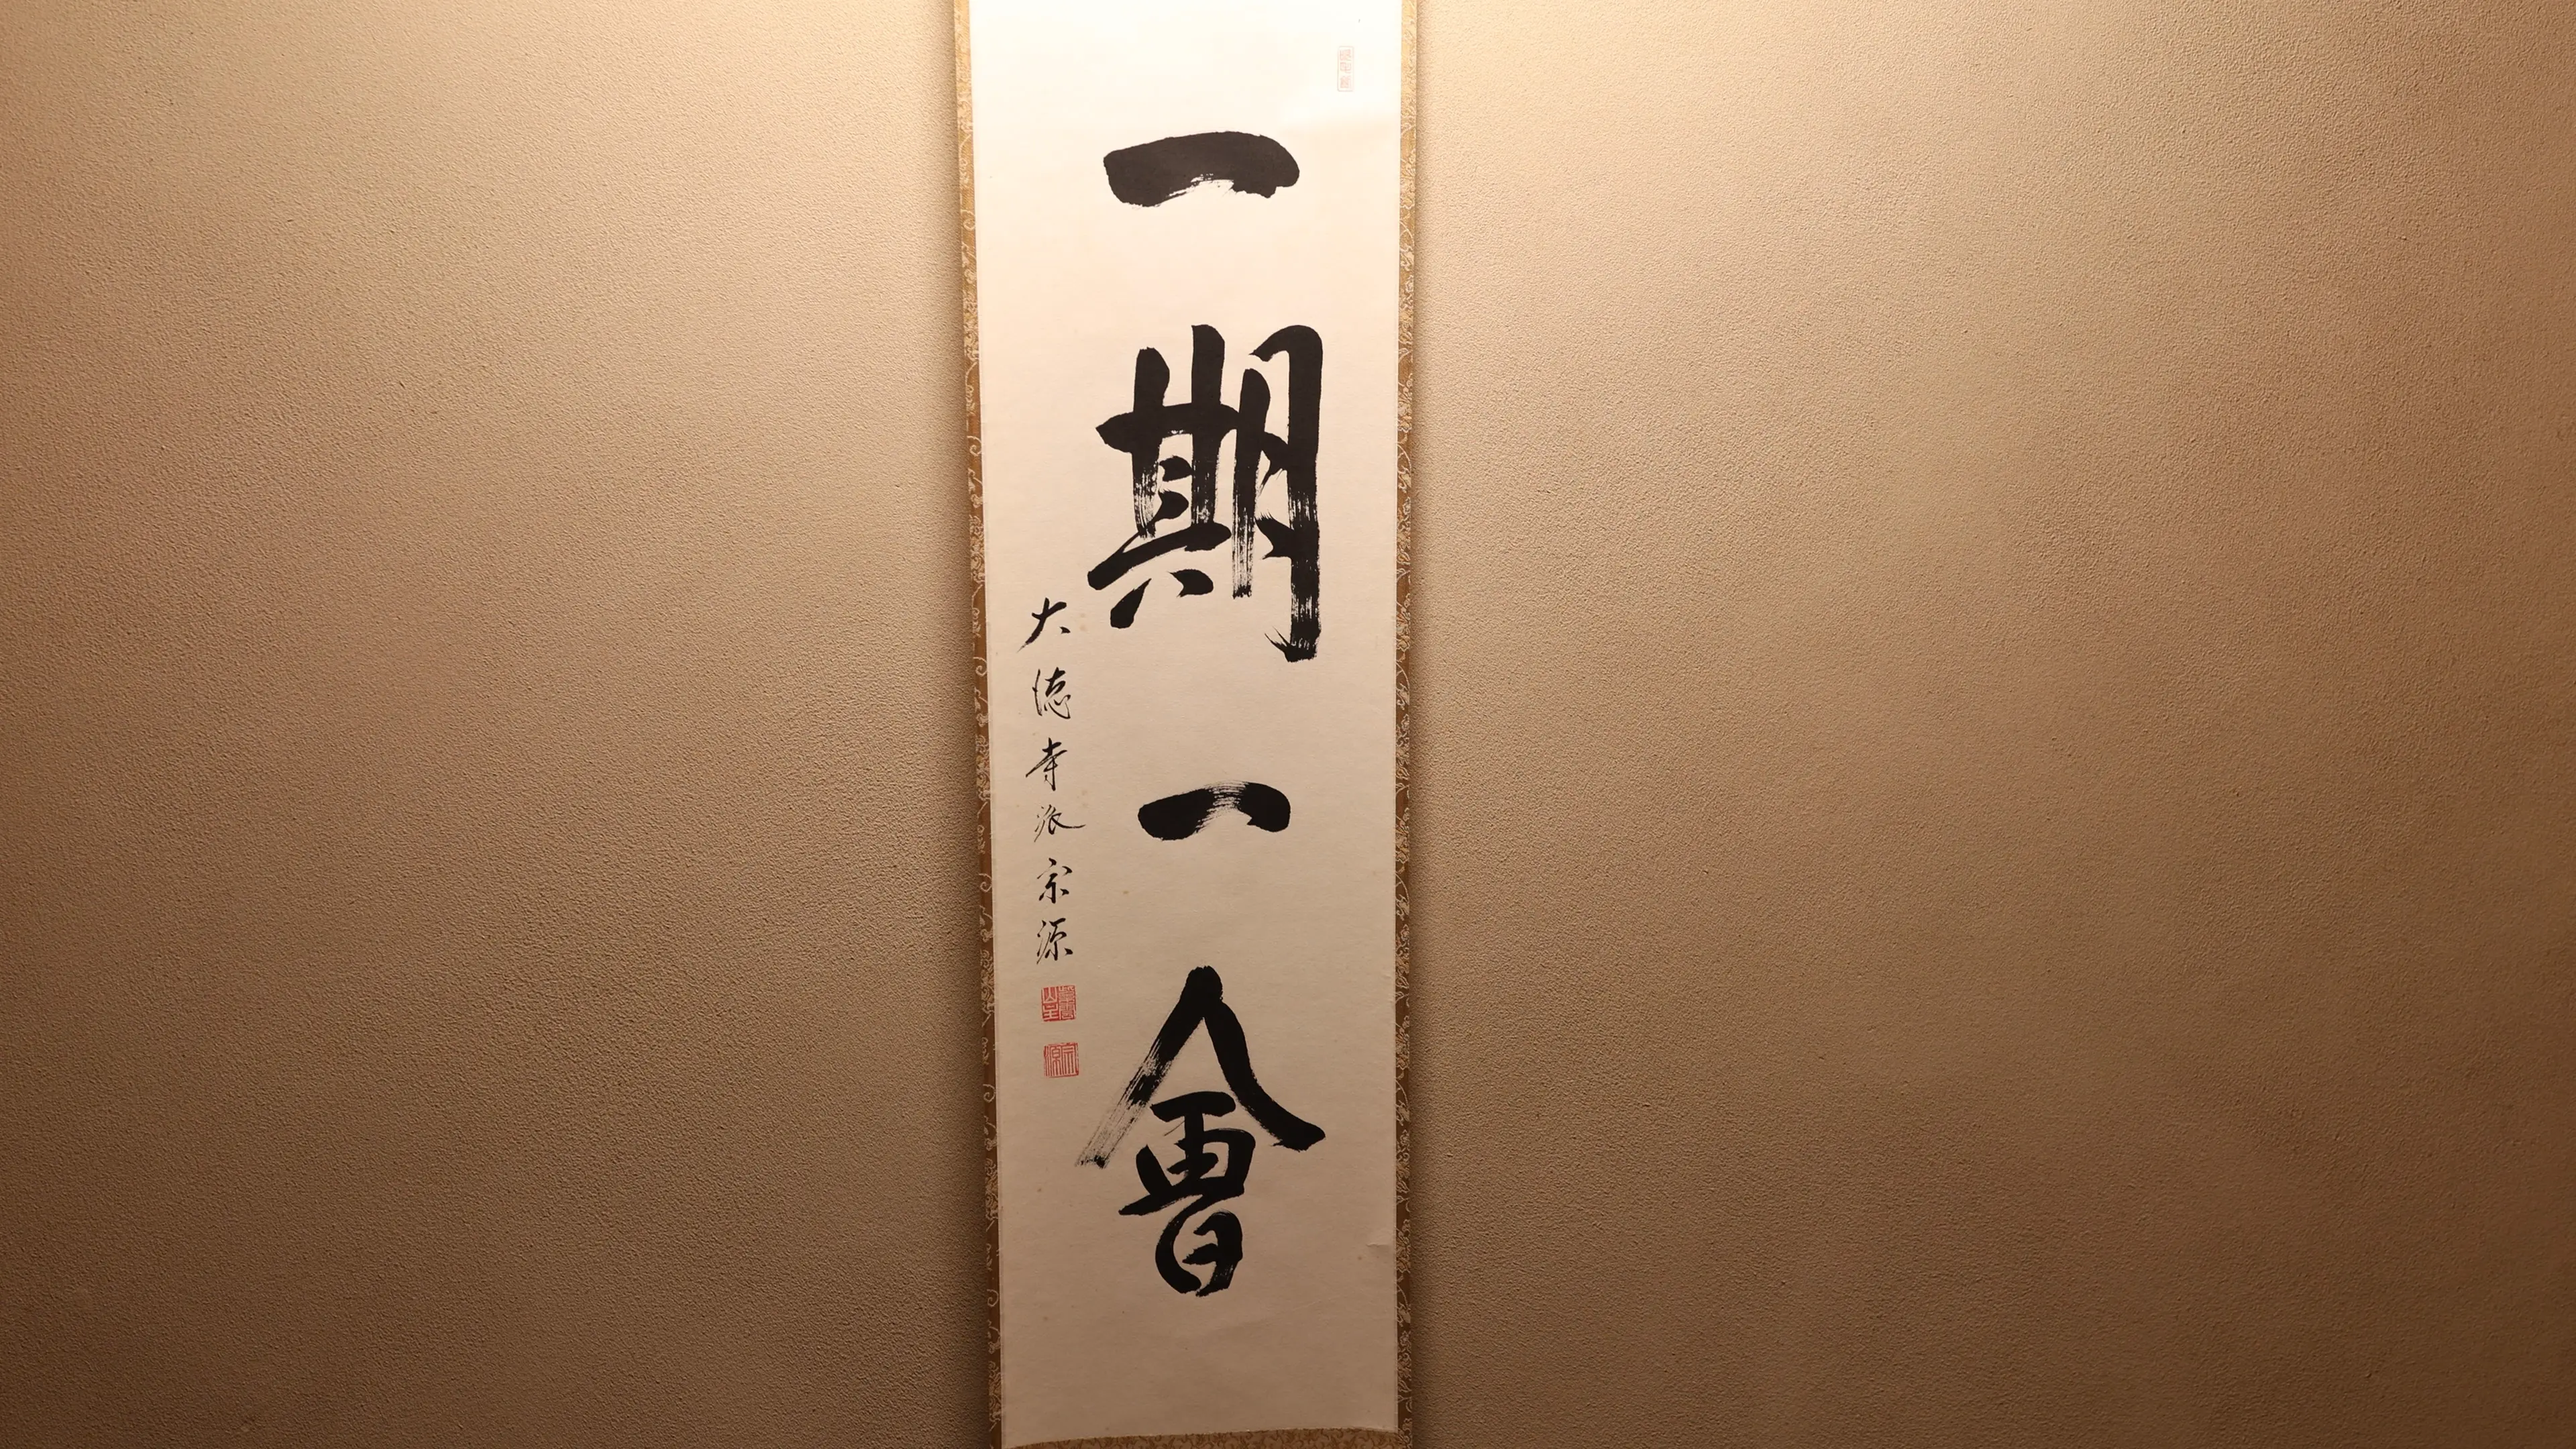 一期一會
大徳寺派宗源
宗源